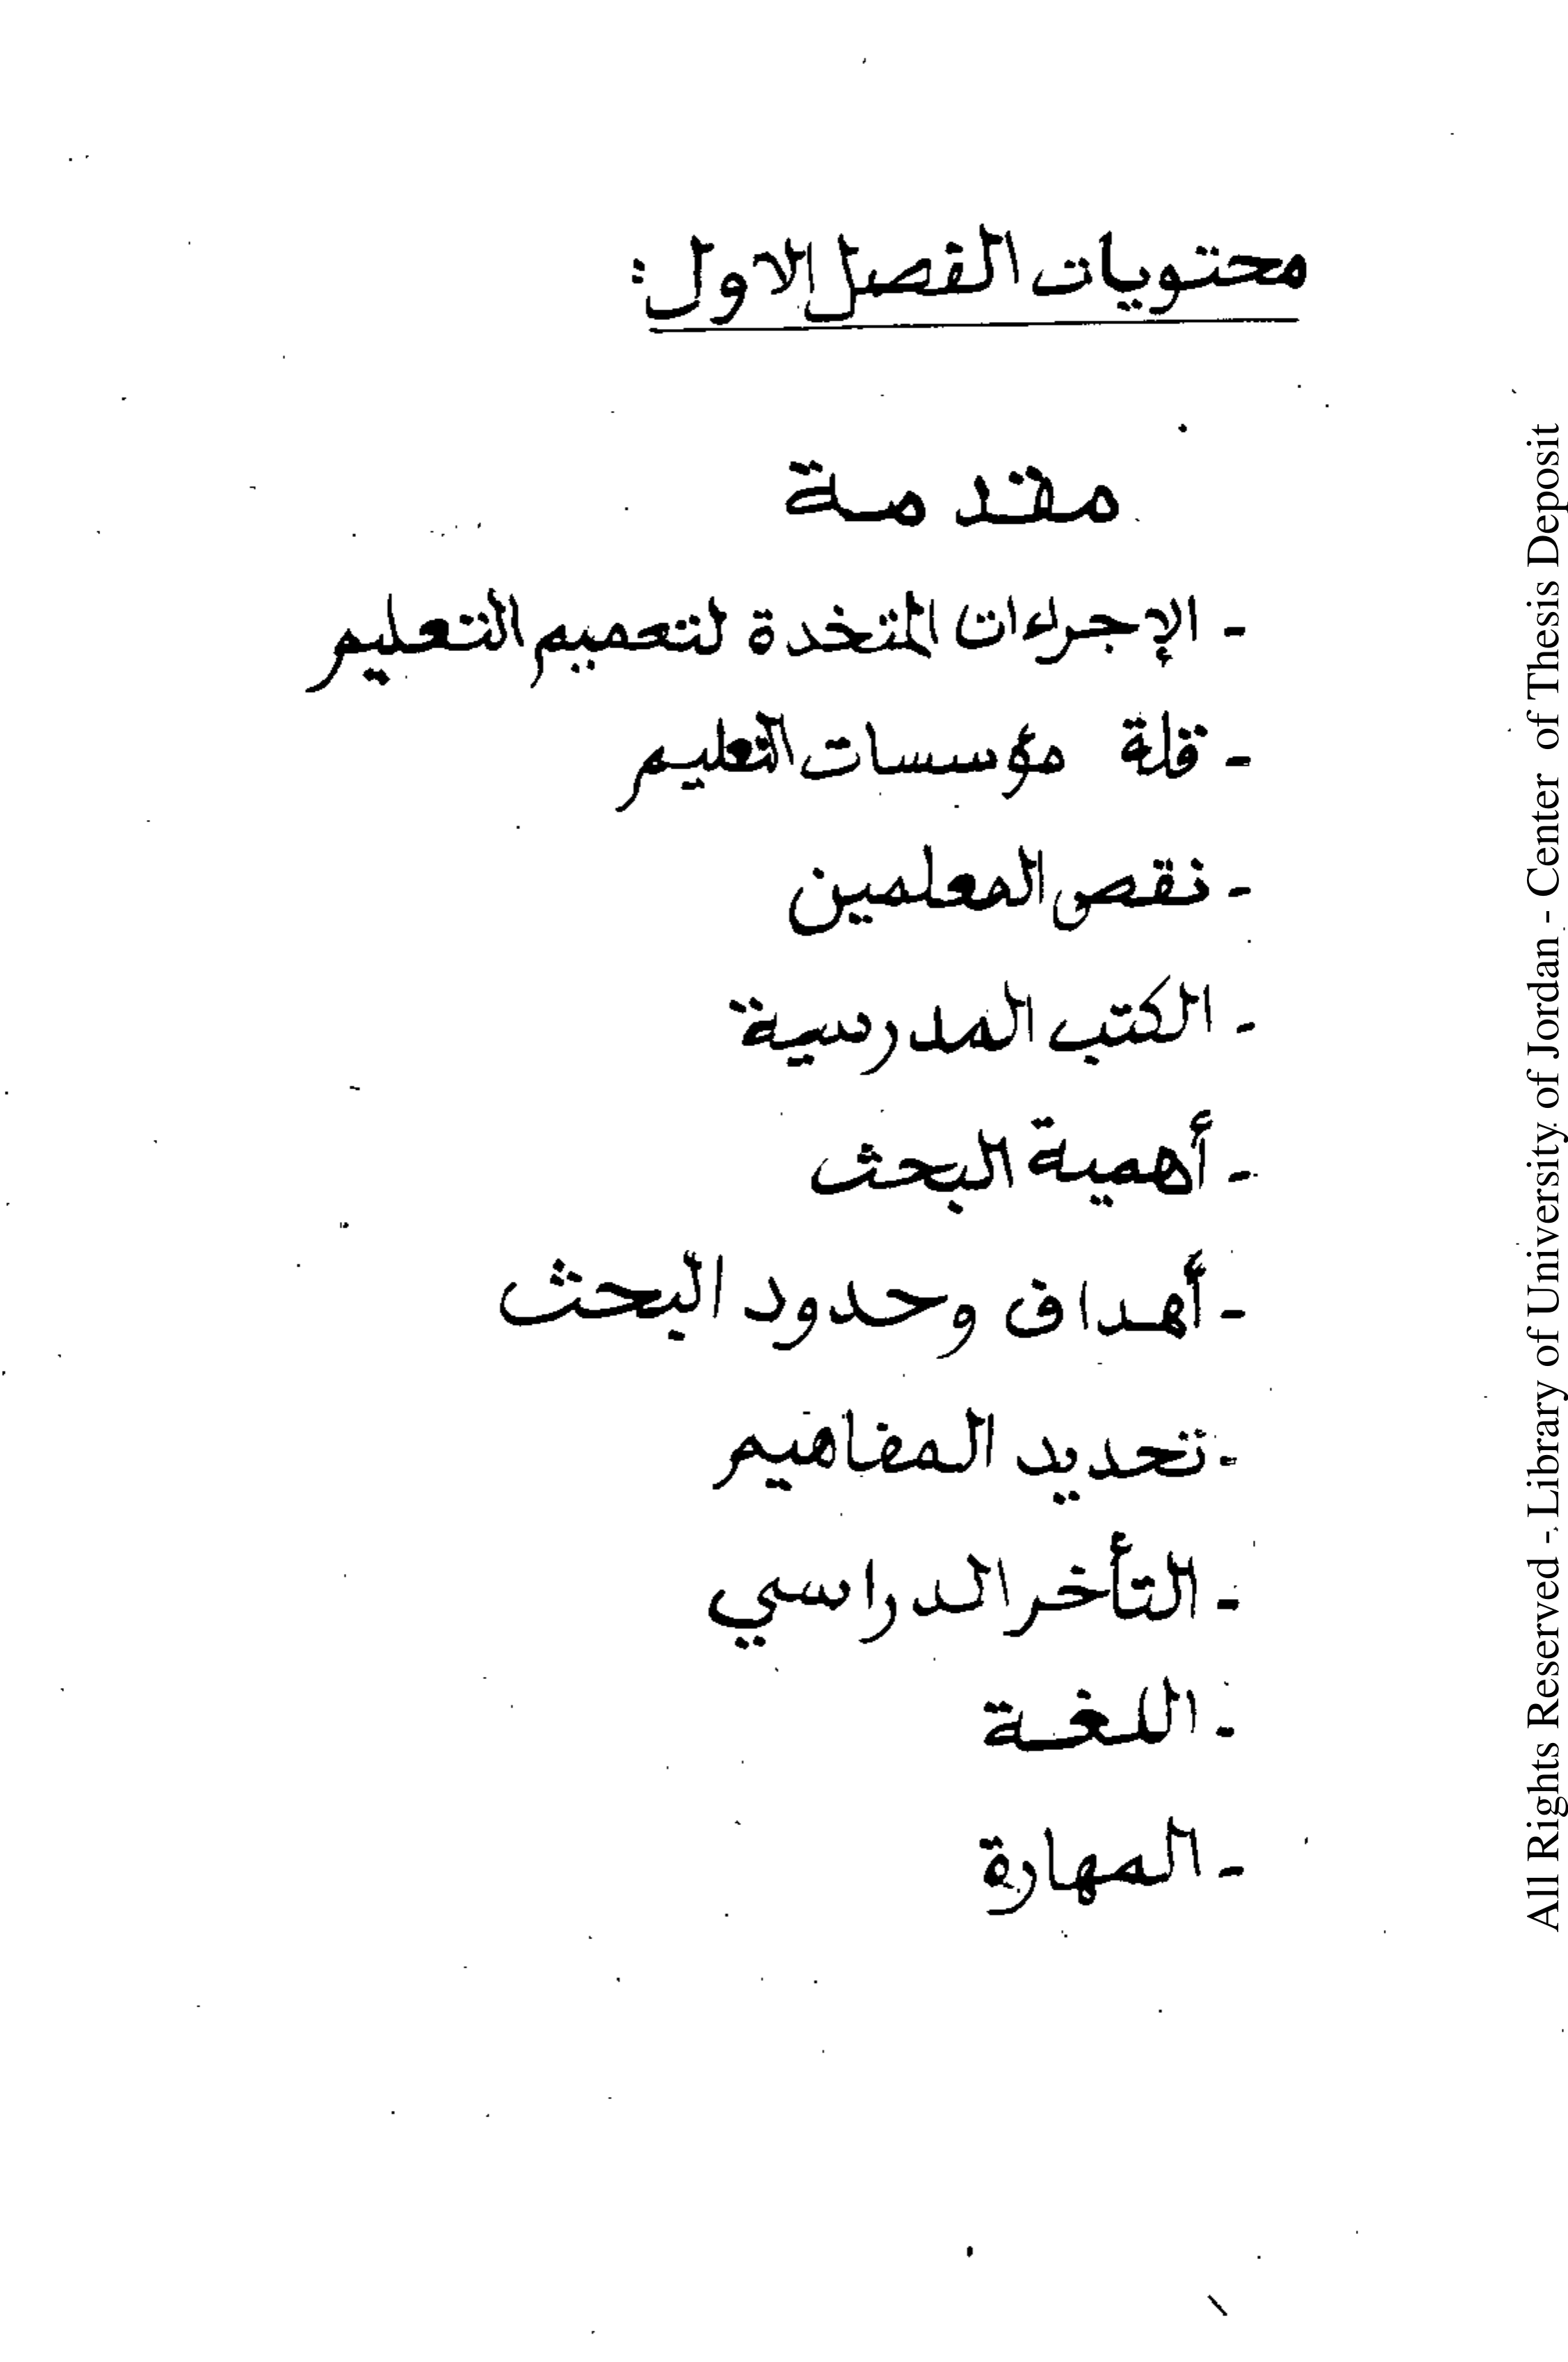 محتويات الفصل الاول:
مقدمة
- الإجراءات المتخدة لتعميم التعليم
- قلة مؤسسات التعليم
- نقص المعلمين
- الكتب المدرسية
- أهمية البحث
- أهداف وحدود البحث
- تحديد المفاهيم
- التأخر الدراسي
- اللغة
- المهارة
All Rights Reserved - Library of University of Jordan - Center of Thesis Deposit